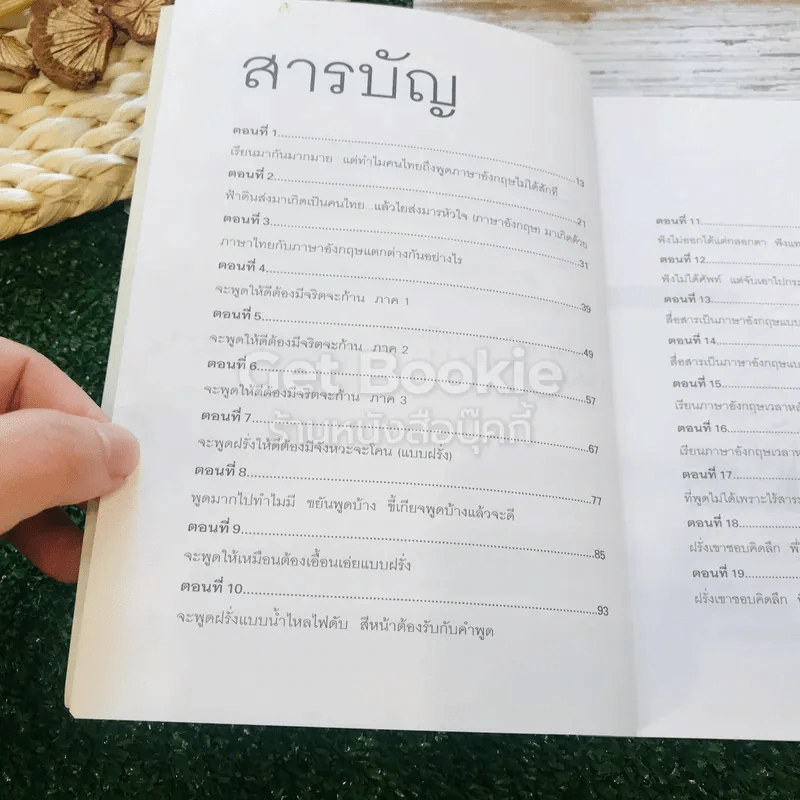 สารบัญ
ตอนที่ 1..........13
เรียนมากันมากมาย แต่ทำไมคนไทยถึงพูดภาษาอังกฤษไม่ได้สักที
ตอนที่ 2..........21
ฟ้าดินส่งมาเกิดเป็นคนไทย...แล้วไยส่งมารหัวใจ (ภาษาอังกฤษ) มาเกิดด้วย
ตอนที่ 3..........31
ภาษาไทยกับภาษาอังกฤษแตกต่างกันอย่างไร
ตอนที่ 4..........39
จะพูดให้ดีต้องมีจริตจะก้าน ภาค 1
ตอนที่ 5..........49
จะพูดให้ดีต้องมีจริตจะก้าน ภาค 2
ตอนที่ 6..........57
จะพูดให้ดีต้องมีจริตจะก้าน ภาค 3
ตอนที่ 7..........67
จะพูดฝรั่งให้ดีต้องมีจังหวะจะโคน (แบบฝรั่ง)
ตอนที่ 8..........77
พูดมากไปทำไมมี ขยันพูดบ้าง ขี้เกียจพูดบ้างแล้วจะดี
ตอนที่ 9..........85
จะพูดให้เหมือนต้องเอื้อนเอ่ยแบบฝรั่ง
ตอนที่ 10..........93
จะพูดฝรั่งแบบน้ำไหลไฟดับ สีหน้าต้องรับกับคำพูด
ตอนที่ 11
ฟังไม่ออกได้แต่กลอกตา
ตอนที่ 12
ฟังไม่ได้ศัพท์ แต่จับเอาไปกระ
ตอนที่ 13
สื่อสารเป็นภาษาอังกฤษแบบ
ตอนที่ 14
สื่อสารเป็นภาษาอังกฤษแบบ
ตอนที่ 15
เรียนภาษาอังกฤษเวลาหลั
ตอนที่ 16
เรียนภาษาอังกฤษเวลาห
ตอนที่ 17
ที่พูดไม่ได้เพราะไร้สาร
ตอนที่ 18
ฝรั่งเขาชอบคิดลึก
ตอนที่ 19
ฝรั่งเขาชอบคิดลึก
Get Bookie
ร้านหนังสือบุ๊คกี้